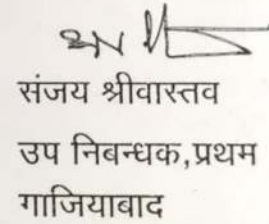 संजय श्रीवास्तव
उप निबन्धक,प्रथम
गाजियाबाद